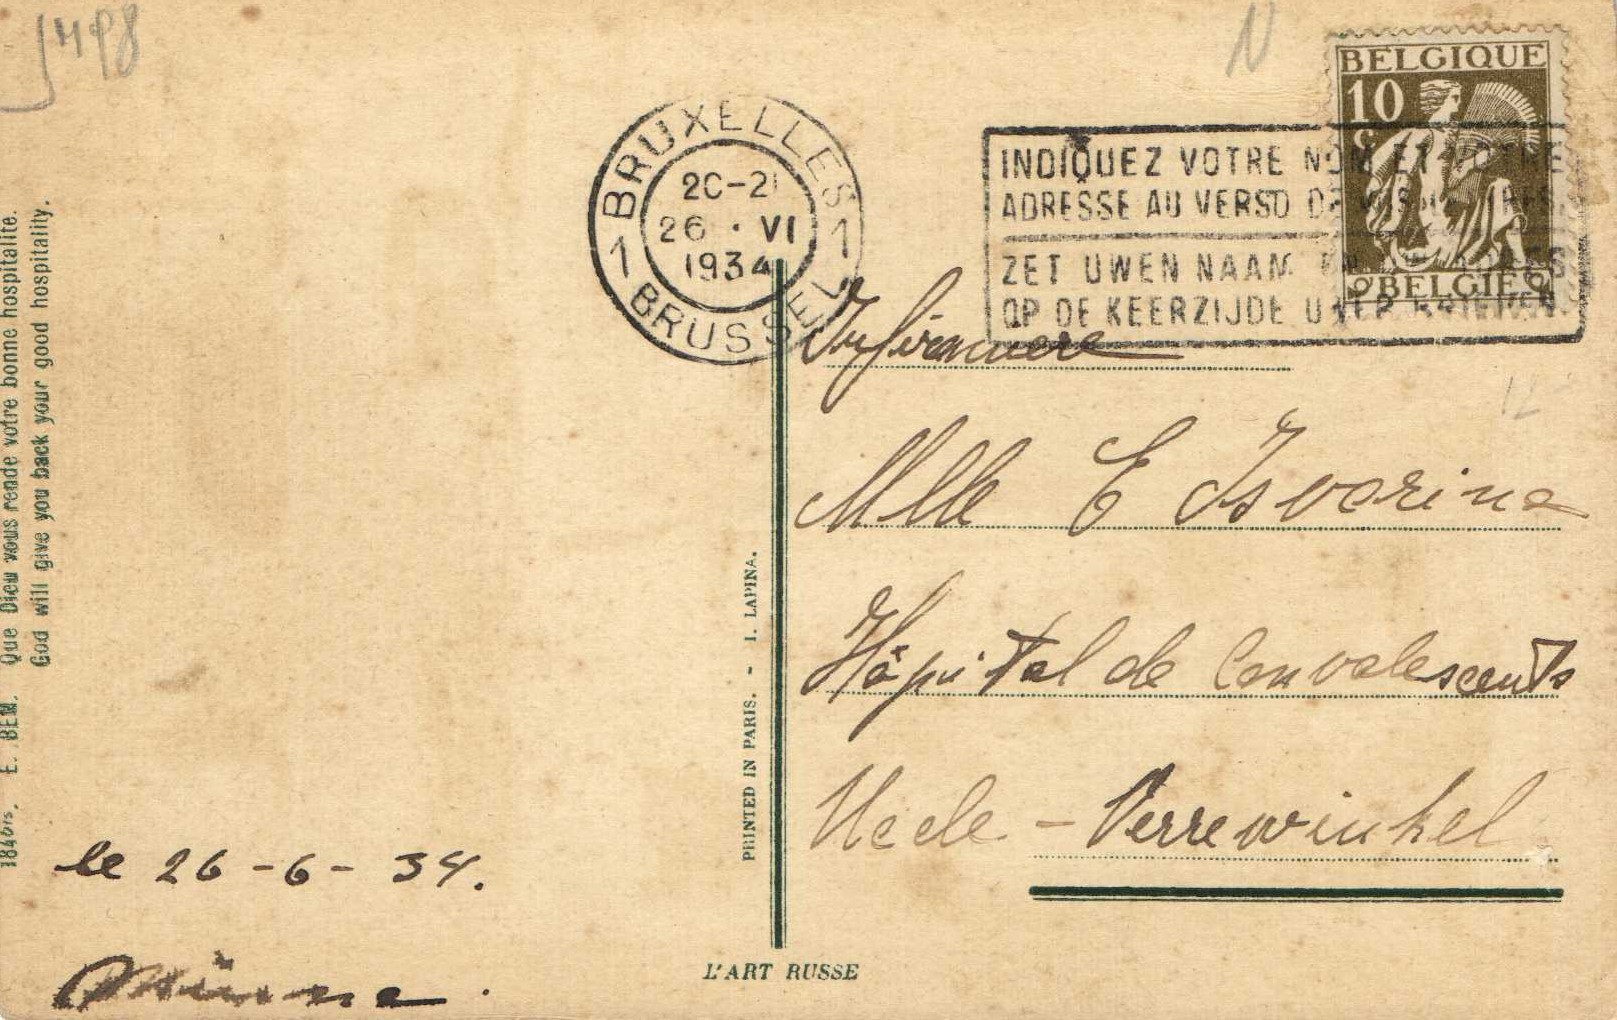 BELGIQUE
10
c
BELGIE
BRUXELLES
1 1
20-21
26 · VI
1934
BRUSSEL
INDIQUEZ VOTRE NOM ET VOTRE
ADRESSE AU VERSO DE
ZET UWEN NAAM
OP DE KEERZIJDE UWER BRIEVEN.
Infirmière
Mlle E Isvorine
Hôpital de Convalescents
Uccle - Verrewinkel
le 26-6-34.
E. BEM. Que Dieu vous rende votre bonne hospitalite.
God will give you back your good hospitality.
PRINTED IN PARIS. - I. LAPINA.
L'ART RUSSE